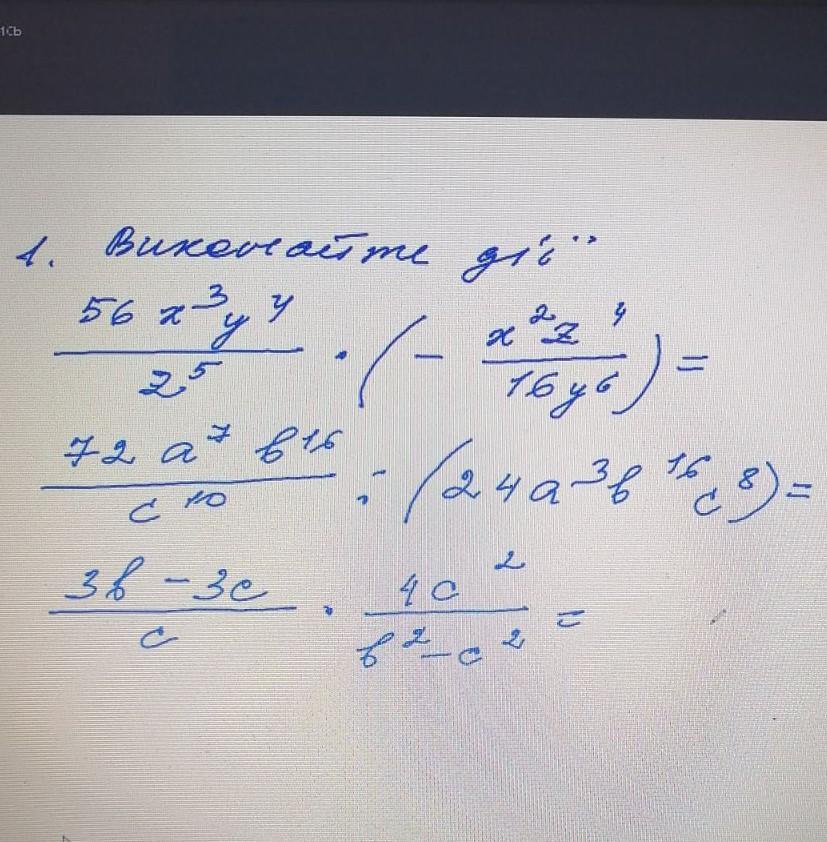 1. Виконайте дії
56 x³y⁴ / z⁵ · (− x²z⁴ / 16y⁶) =
72 a⁷ b¹⁶ / c¹⁰ : (24a³b¹⁶c⁸) =
3b − 3c / c · 4c² / b² − c² =